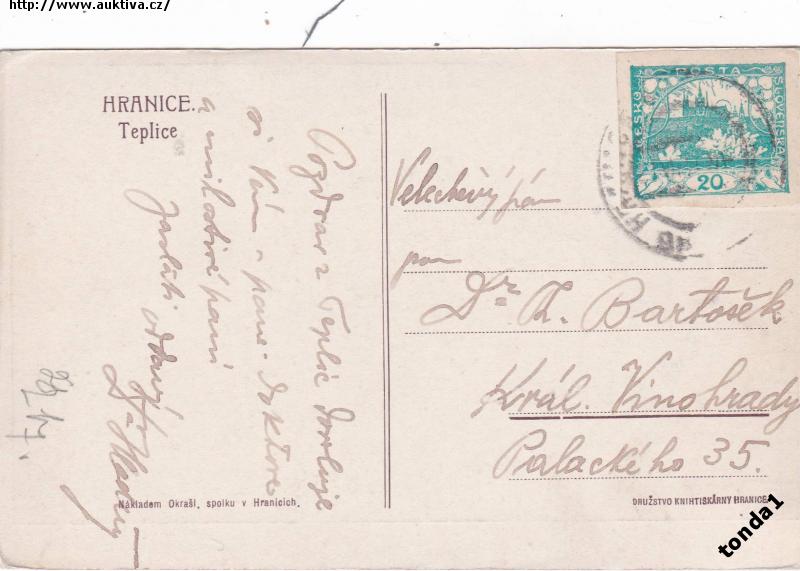 http://www.auktiva.cz/
HRANICE.
Teplice
Pozdrav z Teplic dovoluje
si Vám a pane Doktore
a milostivé paní
zaslati oddaný
Dr
Nákladem Okrašl. spolku v Hranicích.
ČESKO POSTA SLOVENSKÁ
20
Velectěný pán
pan
Dr. K. Bartošek
Král. Vinohrady
Palackého 35.
DRUŽSTVO KNIHTISKÁRNY HRANICE.
tonda1